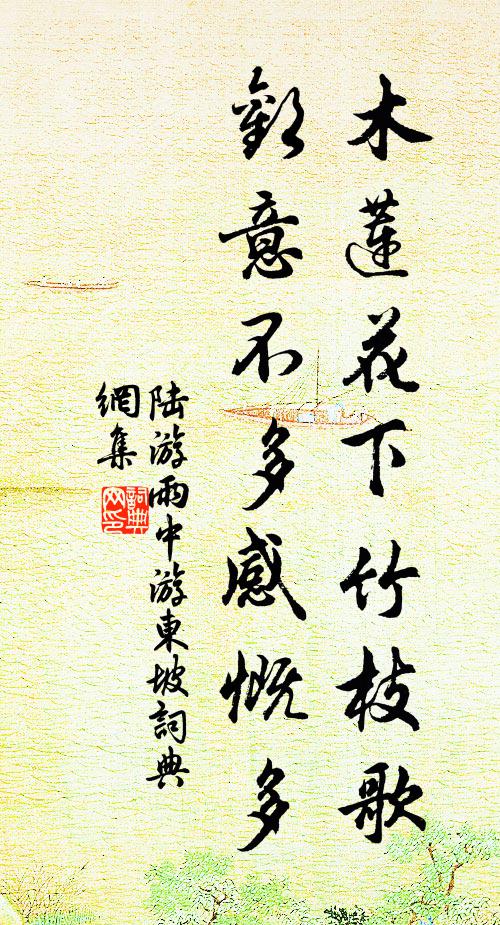 木蓮花下竹枝歌
歡意不多感慨多
陆游雨中游東坡詞典
網集
詞典
网印